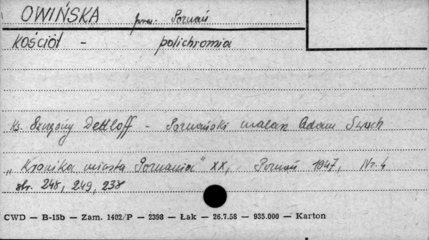 OWIŃSKA pow. Poznań
KOŚCIÓŁ - polichromia
Ks. Szczęsny Dettloff - Poznański malarz Adam Swach
„Kronika miasta Poznania" XX, Poznań 1947, Nr. 4
str. 248, 249, 238
CWD — B-15b — Zam. 1402/P — 2398 — Łak — 26.7.58 — 935.000 — Karton